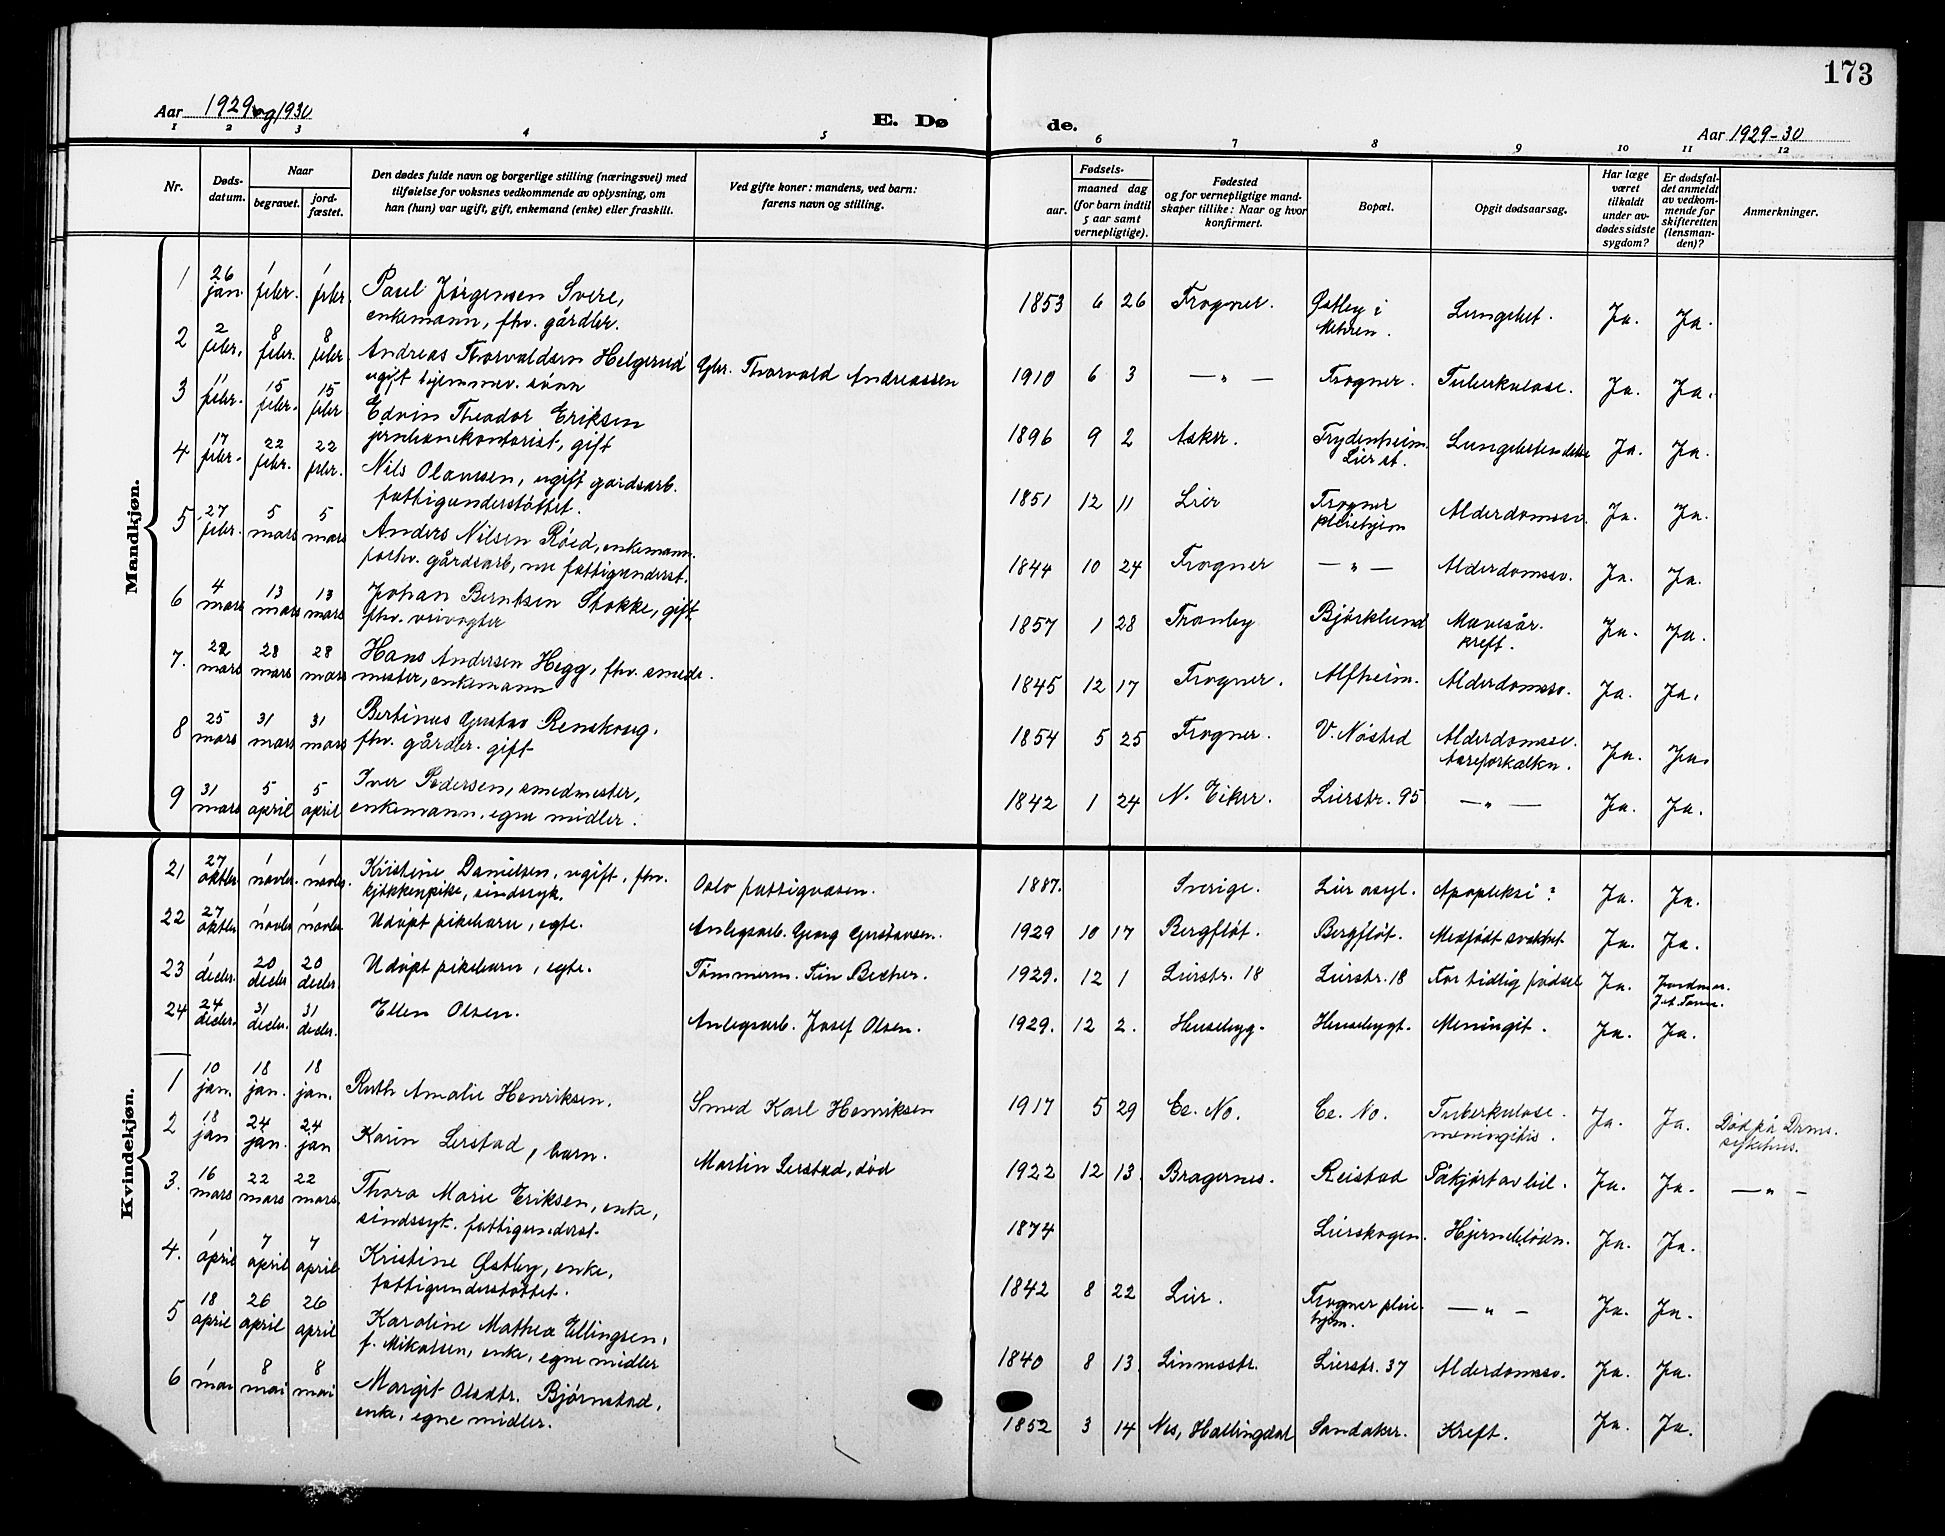 173
Aar 1929 og 1930
E. Dø
de.
Aar 1929-30
1 2 3 4 5 6 7 8 9 10 11 12
Nr.
Døds-
datum.
Naar
begravet.
jord-
fæstet.
Den dødes fulde navn og borgerlige stilling (næringsvei) med
tilføielse for voksnes vedkommende av oplysning, om
han (hun) var ugift, gift, enkemand (enke) eller fraskilt.
Ved gifte koner: mandens, ved barn:
farens navn og stilling.
Fødsels-
aar.
maaned dag
(for barn indtil
5 aar samt
vernepligtige).
Fødested
og for vernepligtige mand-
skaper tillike: Naar og hvor
konfirmert.
Bopæl.
Opgit dødsaarsag.
Har læge
været
tilkaldt
under av-
dødes sidste
sygdom?
Er dødsfal-
det anmeldt
av vedkom-
mende for
skifteretten
(lensman-
den)?
Anmerkninger.
Mandkjøn.
1 26 jan. 1 febr. 1 febr. Paul Jørgensen Svere,
enkemann, fhv. gårdbr.
1853 6 26 Frogner. Østby i
Lungebet. Ja. Ja.
2 2 febr. 8 febr. 8 febr. Andreas Thorvaldsen Helgerud
ugift hjemmev. sønn
Gbr. Thorvald Andreassen
1910 6 3 — " — Frogner. Tuberkulose. Ja. Ja.
3 11 febr. 15 febr. 15 febr Edvin Theodor Eriksen
jernbanekontorist, gift
1896 9 2 Asker. Frydenheim
Lier st.
Lungebetendelse Ja. Ja.
4 17 febr. 22 febr. 22 febr. Nils Olaussen, ugift gardsarb.
fattigunderstøttet.
1851 12 11 Lier Frogner
pleiehjem
Alderdomssv. Ja. Ja.
5 27 febr. 5 mars 5 mars Anders Nilsen Røed, enkemann.
forhv. gårdsarb, nu fattigunderst.
1844 10 24 Frogner — " — Alderdomssv. Ja. Ja.
6 4 mars 13 mars 13 mars Johan Berntsen Stokke, gift
fhv. veivogter
1857 1 28 Tranby Bjørklund Mavesår.
kreft.
Ja. Ja.
7. 22 mars 28 mars 28 mars Hans Andersen Hegg, fhv. smede-
mester, enkemann
1845 12 17 Frogner. Alfheim. Alderdomssv. Ja. Ja.
8 25 mars 31 mars 31 mars Bertinus Gustav Renskoug.
fhv. gårdbr. gift
1854 5 25 Frogner. V. Nøsted Alderdomssv.
Aareforkalkn.
Ja. Ja.
9 31 mars 5 april 5 april Iver Pedersen, smedmester,
enkemann, egne midler.
1842 1 24 N. Eiker. Lierstr. 95 — " — Ja. Ja.
Kvindekjøn.
21 27 oktbr 1 novbr. 1 novbr. Kristine Danielsen, ugift, fhv.
kjøkkenpike, sindssyk.
Oslo fattigvesen.
1887. Sverige. Lier asyl. Apopleksi? Ja. Ja.
22 27 oktbr 1 novbr 1 novbr Udøpt pikebarn, egte.
Anlegsarb. Georg Gustavsen.
1929 10 17 Bergfløt. Bergfløt. Medfødt svakhet Ja. Ja.
23 1 decbr. 20 decbr 20 decbr. Udøpt pikebarn, egte.
Tømmerm. Finn Becher.
1929. 12 1 Lierstr. 18 Lierstr. 18 For tidlig fødsel Ja. Jordmor.
24 24 decbr. 31 decbr. 31 decbr. Ellen Olsen.
Anlegsarb. Josef Olsen.
1929. 12 2. Husebyg. Husebygt. Meningit. Ja. Ja.
1 10 jan. 18 jan. 18 jan. Ruth Amalie Henriksen.
Smed Karl Henriksen
1917 5 29 Ee. No. Ee. No. Tuberkuløse.
meningitis.
Ja. Ja. Død på Drms.
sykehus.
2 18 jan 24 jan. 24 jan Karin Lerstad, barn.
Martin Lerstad, død
1922 12 13. Bragernes. Reistad Påkjørt av bil. Ja. Ja. — " —
3. 16 mars 22 mars 22 mars. Thora Marie Eriksen, enke,
sindssyk. fattigunderst.
1874 Lierskogen. Hjerneblødn. Ja. Ja.
4. 1 april 7 april 7 april Kristine Østby, enke,
fattigunderstøttet.
1842 8 22 Lier. Frogner pleie-
hjem.
— " — Ja. Ja.
5 18 april 26 april 26 april Karoline Mathea Ellingsen,
f. Mikalsen, enke, egne midler
1840 8 13. Linnesstr. Lierstr. 37 Alderdomssv. Ja. Ja.
6 1 mai 8 mai 8 mai Margit Olsdtr. Bjørnstad,
enke, egne midler.
1852 3 14 Nes, Hallingdal Sandaker. Kreft. Ja. Ja.